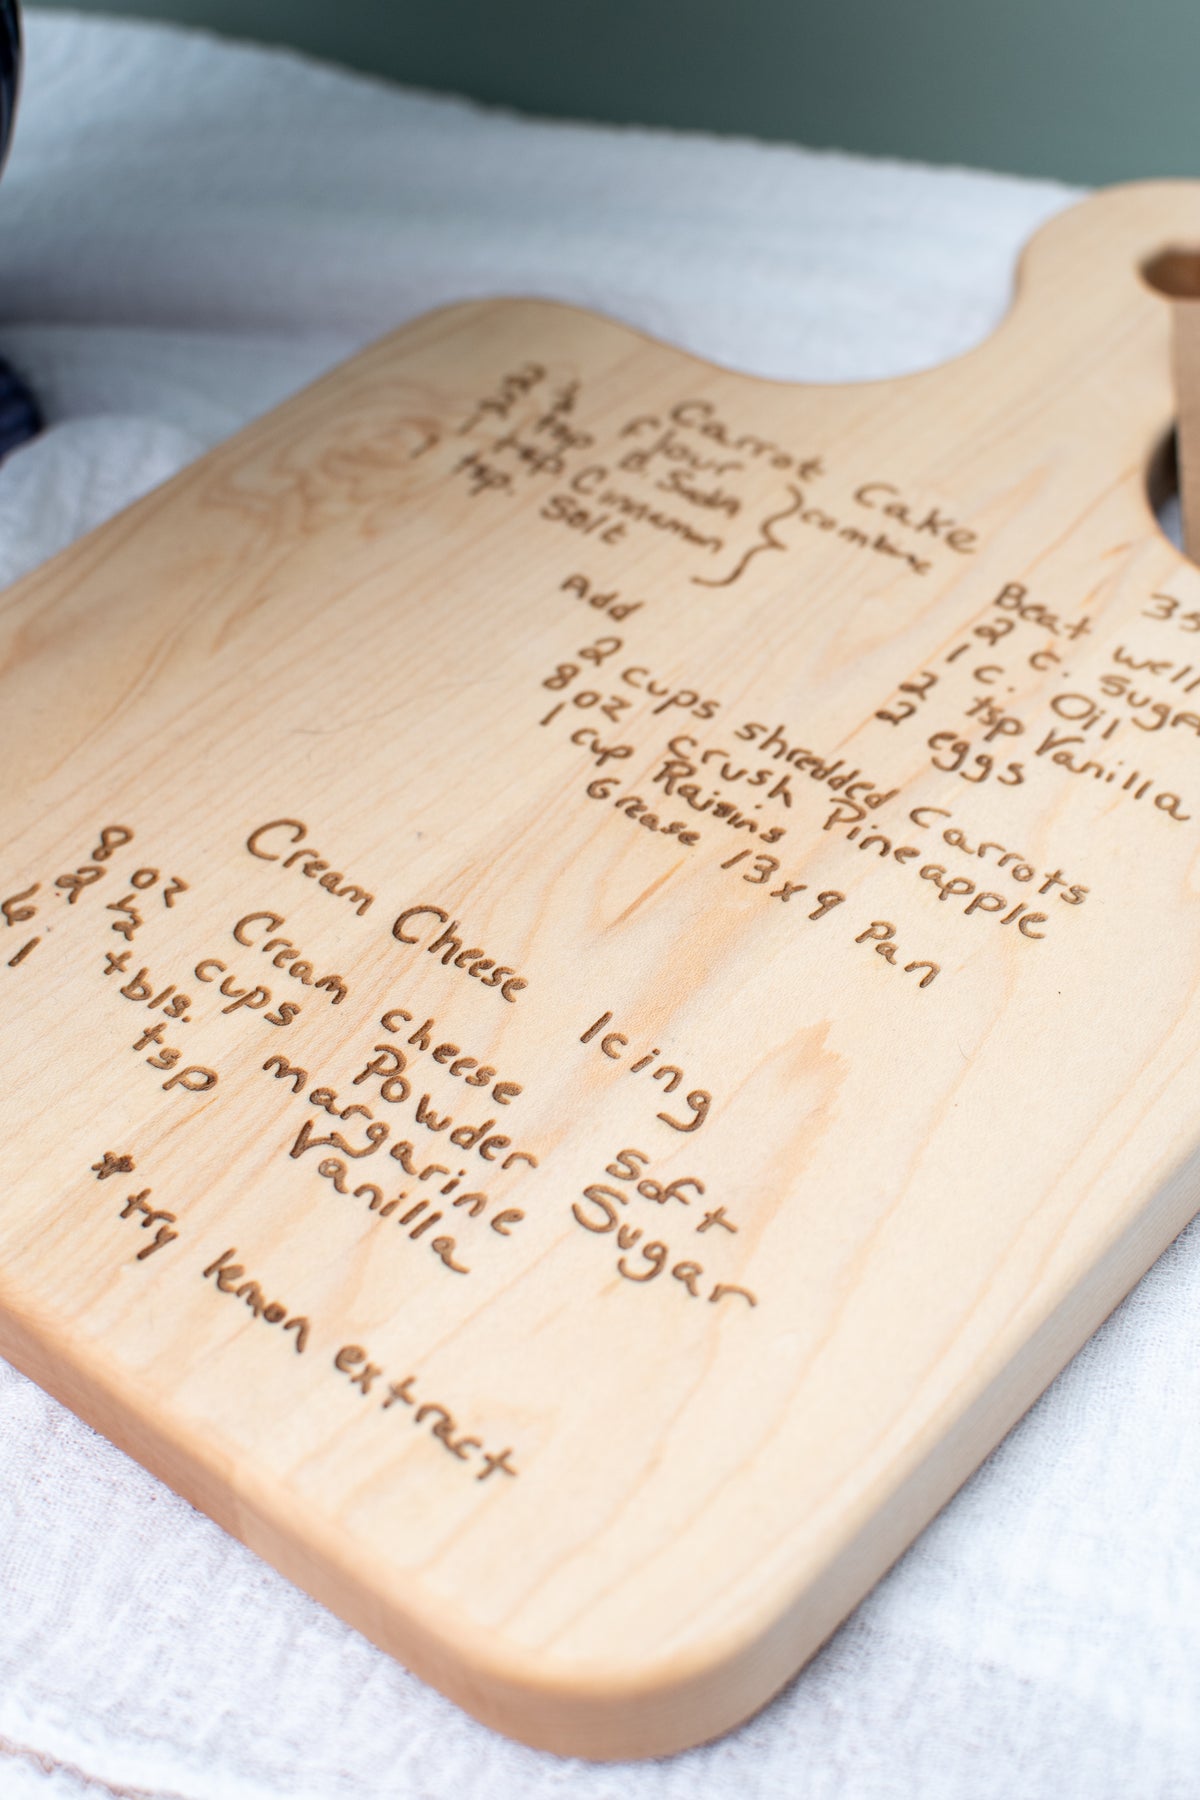 Carrot Cake 35
2 flour
2 tsp B. Soda
tsp Cinnamon
tsp. Salt
} combine
Beat well
2 c. Sugar
1 c. Oil
2 tsp Vanilla
2 eggs
Add
2 cups shredded Carrots
8 oz crush Pineapple
1 cup Raisins
Grease 13x9 Pan
Cream Cheese Icing
8 oz Cream cheese Soft
2 1/2 cups Powder Sugar
6 tbls. margarine
1 tsp Vanilla
* try lemon extract